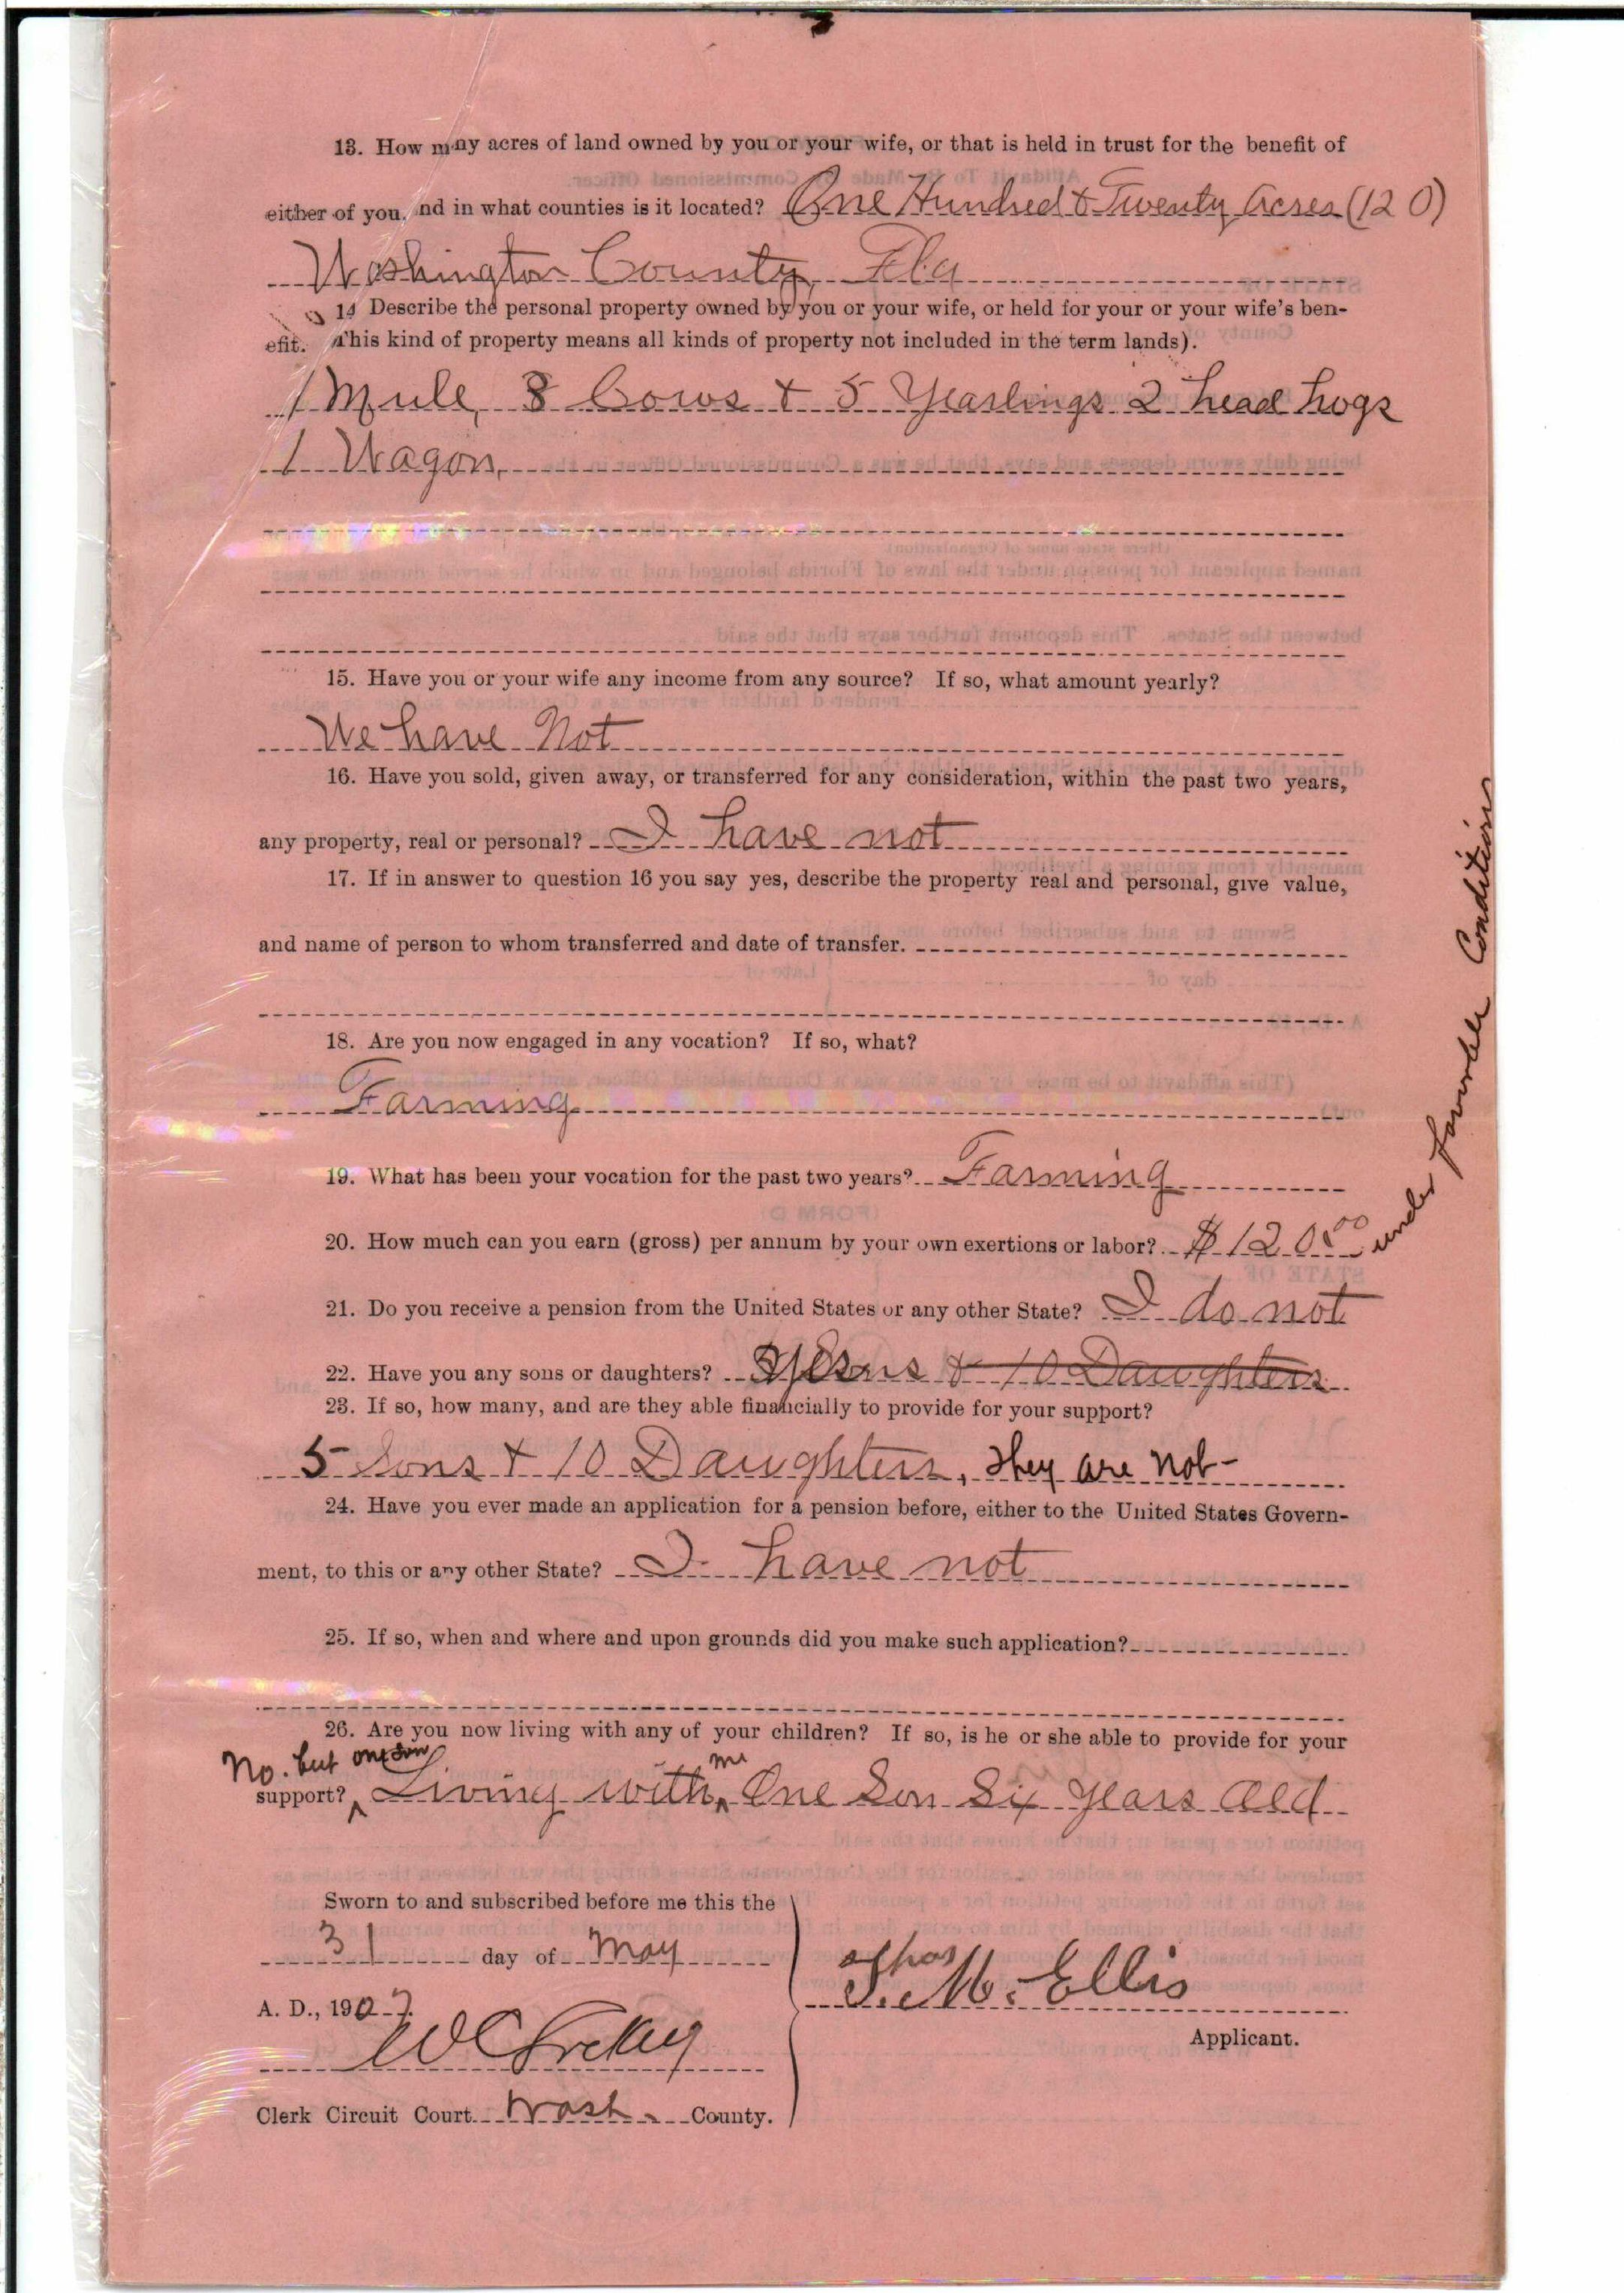 13. How many acres of land owned by you or your wife, or that is held in trust for the benefit of
either of you, nd in what counties is it located? One Hundred & Twenty Acres (120)
Washington County Fla
14 Describe the personal property owned by you or your wife, or held for your or your wife's ben-
efit. This kind of property means all kinds of property not included in the term lands).
1 Mule, 8 Cows & 5 Yearlings 2 head hogs
1 Wagon,
15. Have you or your wife any income from any source? If so, what amount yearly?
We have Not
16. Have you sold, given away, or transferred for any consideration, within the past two years,
any property, real or personal? I have not
17. If in answer to question 16 you say yes, describe the property real and personal, give value,
and name of person to whom transferred and date of transfer.
18. Are you now engaged in any vocation? If so, what?
Farming
19. What has been your vocation for the past two years? Farming
20. How much can you earn (gross) per annum by your own exertions or labor? $120.00 under favorable Conditions
21. Do you receive a pension from the United States or any other State? I do not
22. Have you any sons or daughters? Yes & 10 Daughters
23. If so, how many, and are they able financially to provide for your support?
5 Sons & 10 Daughters, they are not-
24. Have you ever made an application for a pension before, either to the United States Govern-
ment, to this or any other State? I have not
25. If so, when and where and upon grounds did you make such application?
26. Are you now living with any of your children? If so, is he or she able to provide for your
No. but one son me
support? Living with One Son Six Years Old
Sworn to and subscribed before me this the
31 day of May
A. D., 1907.
T. M. Ellis
Applicant.
Clerk Circuit Court Wash. County.